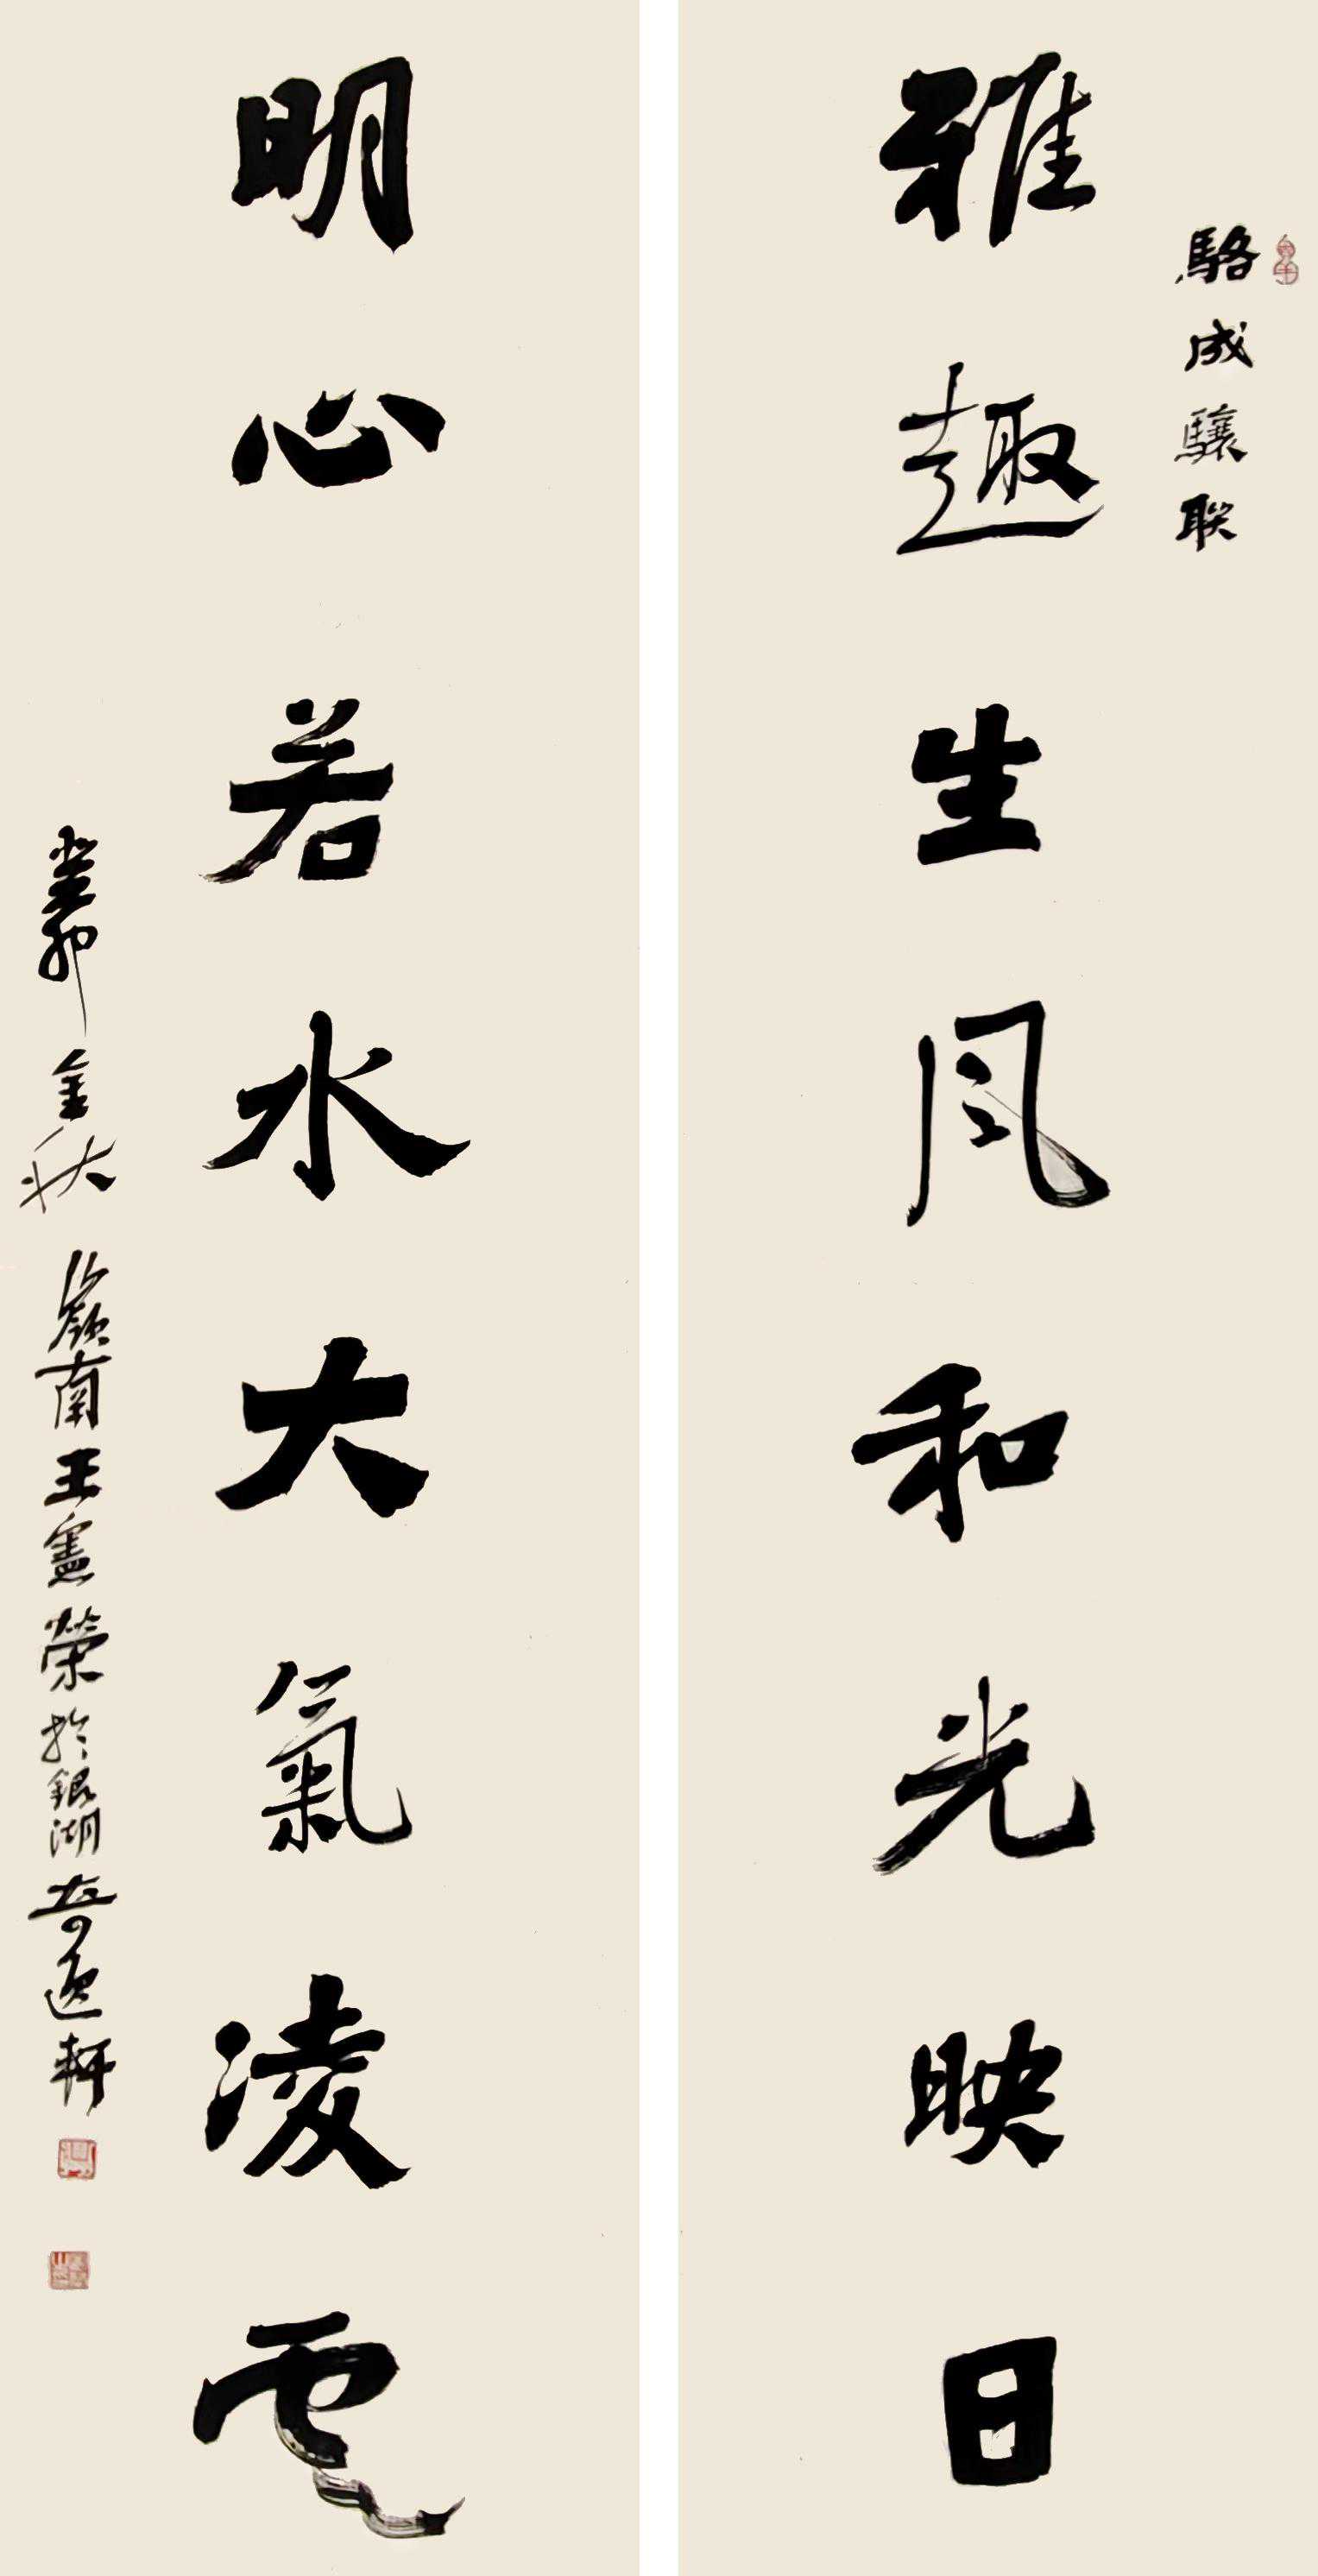 駱成驤联
雅趣生风和光映日
明心若水大氣凌雲
癸卯金秋嶺南王憲榮於銀湖奇逸軒